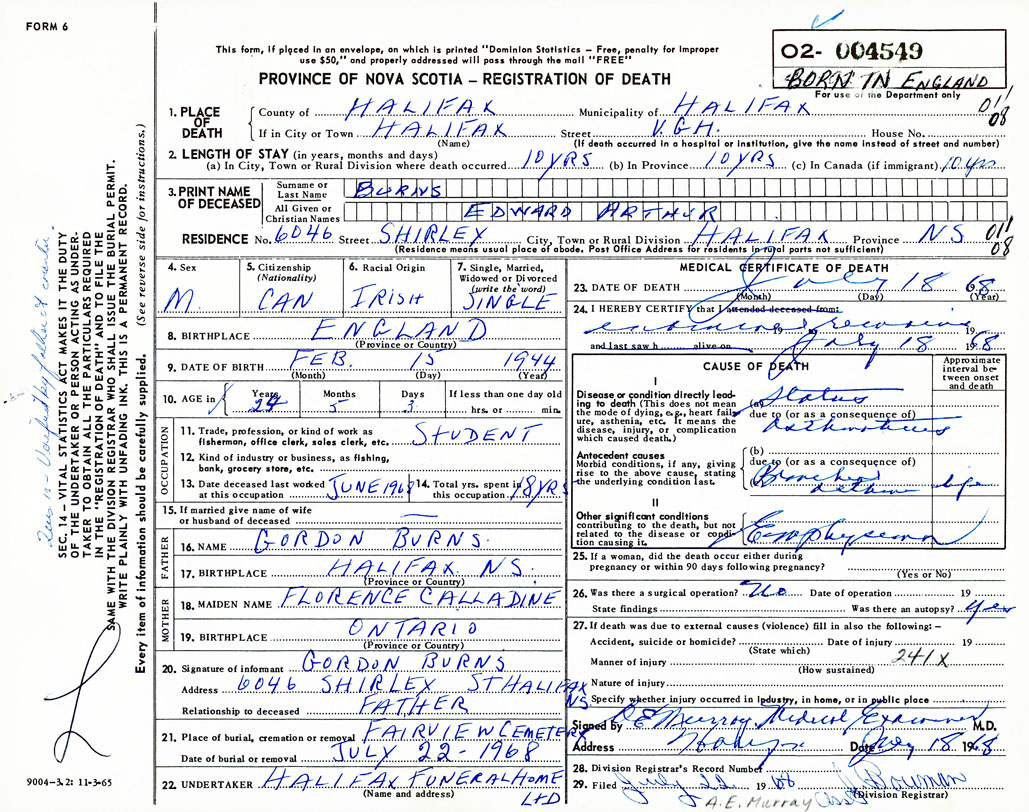 FORM 6
This form, if placed in an envelope, on which is printed "Dominion Statistics – Free, penalty for improper
use $50," and properly addressed will pass through the mail "FREE"
PROVINCE OF NOVA SCOTIA – REGISTRATION OF DEATH
02- 004549
BORN IN ENGLAND
For use of the Department only
011
08
1. PLACE OF DEATH
County of HALIFAX Municipality of HALIFAX
If in City or Town HALIFAX Street V.G.H. House No.
(Name) (If death occurred in a hospital or institution, give the name instead of street and number)
2. LENGTH OF STAY (in years, months and days)
(a) In City, Town or Rural Division where death occurred 10 YRS (b) In Province 10 YRS (c) In Canada (if immigrant) 10 yrs
3. PRINT NAME OF DECEASED
Surname or Last Name BURNS
All Given or Christian Names EDWARD ARTHUR
RESIDENCE No. 6046 Street SHIRLEX City, Town or Rural Division HALIFAX Province NS 011
08
(Residence means usual place of abode. Post Office Address for residents in rural parts not sufficient)
4. Sex M.
5. Citizenship (Nationality) CAN
6. Racial Origin IRISH
7. Single, Married, Widowed or Divorced (write the word) SINGLE
8. BIRTHPLACE ENGLAND
(Province or Country)
9. DATE OF BIRTH FEB. 15 1944
(Month) (Day) (Year)
10. AGE in Years 24 Months 5 Days 3 If less than one day old hrs. or min.
OCCUPATION
11. Trade, profession or kind of work as
fisherman, office clerk, sales clerk, etc. STUDENT
12. Kind of industry or business, as fishing,
bank, grocery store, etc.
13. Date deceased last worked at this occupation JUNE 1968 14. Total yrs. spent in this occupation 18 YRS
15. If married give name of wife
or husband of deceased —
FATHER
16. NAME GORDON BURNS
17. BIRTHPLACE HALIFAX NS.
(Province or Country)
MOTHER
18. MAIDEN NAME FLORENCE CALLADINE
19. BIRTHPLACE ONTARIO
(Province or Country)
20. Signature of informant GORDON BURNS
Address 6046 SHIRLEX ST HALIFAX NS
Relationship to deceased FATHER
21. Place of burial, cremation or removal FAIRVIEW CEMETERY
Date of burial or removal JULY 22-1968
22. UNDERTAKER HALIFAX FUNERAL HOME LTD
(Name and address)
MEDICAL CERTIFICATE OF DEATH
23. DATE OF DEATH July 18 1968
(Month) (Day) (Year)
24. I HEREBY CERTIFY that I attended deceased from:
19
and last saw h alive on July 18 1968
CAUSE OF DEATH
Approximate interval between onset and death
I
Disease or condition directly lead-
ing to death (This does not mean
the mode of dying, e.g., heart fail-
ure, asthenia, etc. It means the
disease, injury, or complication
which caused death.)
(a) Status
due to (or as a consequence of)
asthmaticus
Antecedent causes
Morbid conditions, if any, giving
rise to the above cause, stating
the underlying condition last.
(b)
due to (or as a consequence of)
(c) Bronchial asthma life
II
Other significant conditions
contributing to the death, but not
related to the disease or condi-
tion causing it.
Emphysema
25. If a woman, did the death occur either during
pregnancy or within 90 days following pregnancy?
(Yes or No)
26. Was there a surgical operation? No Date of operation 19
State findings Was there an autopsy? yes
27. If death was due to external causes (violence) fill in also the following: –
Accident, suicide or homicide? Date of injury 19
(State which)
241X
Manner of injury
(How sustained)
Nature of injury
Specify whether injury occurred in industry, in home, or in public place
Signed by Murray Medical Examiner M.D.
Address Date July 18 1968
28. Division Registrar's Record Number
29. Filed July 22 1968 Bowman
(Division Registrar)
A. E. Murray
SEC. 14 – VITAL STATISTICS ACT MAKES IT THE DUTY
OF THE UNDERTAKER OR PERSON ACTING AS UNDER-
TAKER TO OBTAIN ALL THE PARTICULARS REQUIRED
IN THE "REGISTRATION OF DEATH" AND TO FILE THE
SAME WITH THE DIVISION REGISTRAR WHO SHALL ISSUE THE BURIAL PERMIT.
WRITE PLAINLY WITH UNFADING INK. THIS IS A PERMANENT RECORD.
Every item of information should be carefully supplied. (See reverse side for instructions.)
9004-3.2: 11-3-65